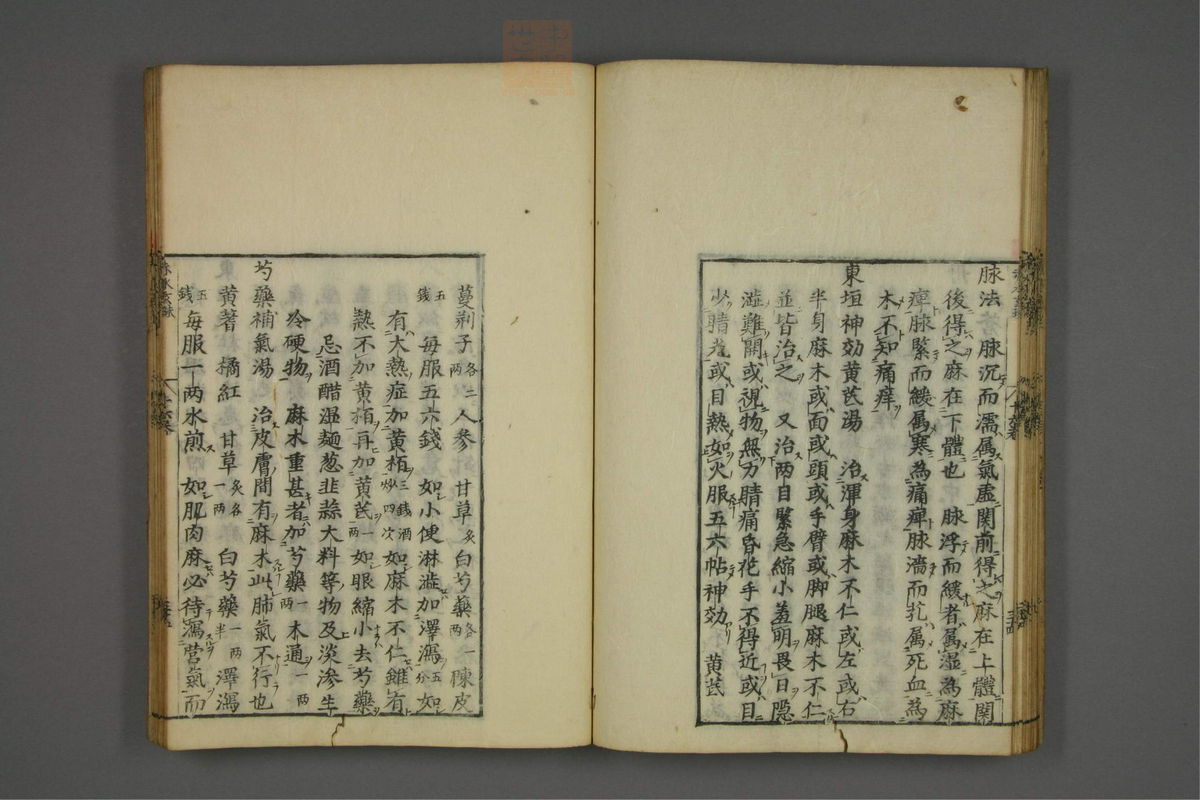 脉法 脉沉而濡属氣虚関前得之麻在上體関
後得之麻在下體也 脉浮而緩者属湿為麻
痺脉緊而緩属寒為痛痺脉濇而芤属死血為
木不知痛痒
東垣神効黄芪湯 治渾身麻木不仁或左或右
半身麻木或面或頭或手臂或脚腿麻木不仁
並皆治之 又治两目緊急縮小羞明畏日隠
澁難開或視物無力睛痛昏花手不得近或目
少睛光或目熱如火服五六帖神効 黄芪
蔓荆子各二两 人参 甘草炙 白芍藥各一两 陳皮
五錢 毎服五六錢 如小便淋澁加澤瀉五分如
有大熱症加黄栢三錢酒炒四次如麻木不仁雖有
熱不加黄栢再加黄芪一两如眼縮小去芍藥
忌酒醋湿麺葱韭蒜大料等物及淡滲生
冷硬物 麻木重甚者加芍藥一两木通一两
芍藥補氣湯 治皮膚間有麻木此肺氣不行也
黄蓍 橘紅 甘草炙各一两 白芍藥一两半 澤瀉
五錢 毎服一两水煎 如肌肉麻必待瀉营氣而